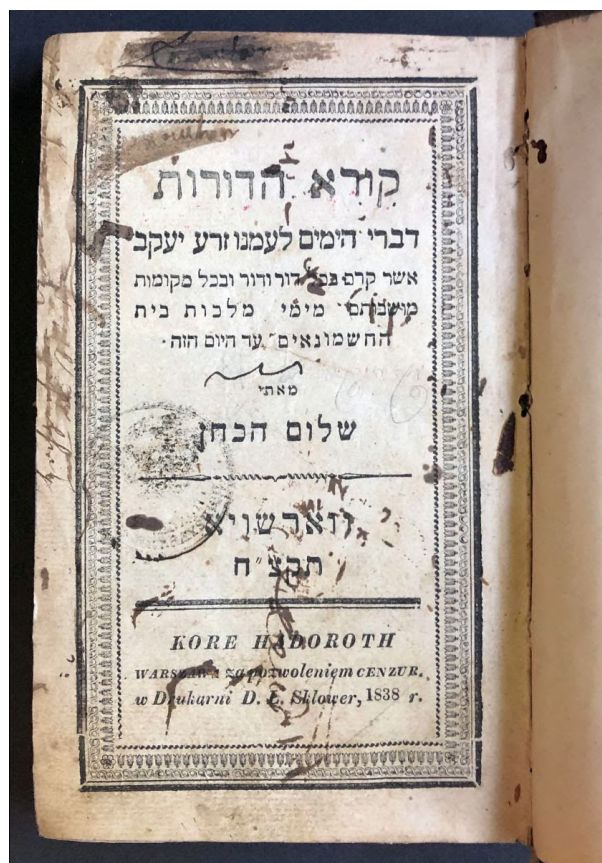 קורא הדורות
דברי הימים לעמנו זרע יעקב
אשר קרם בכל דור ודור ובכל מקומות
מושבתם מימי מלכות בית
החשמונאים עד היום הזה.
מאתי
שלום הכהן
ווארשויא
תקצ"ח
KORE HADOROTH
WARSZAWA za pozwoleniem CENZUR.
w Drukarni D. L. Sklower, 1838 r.